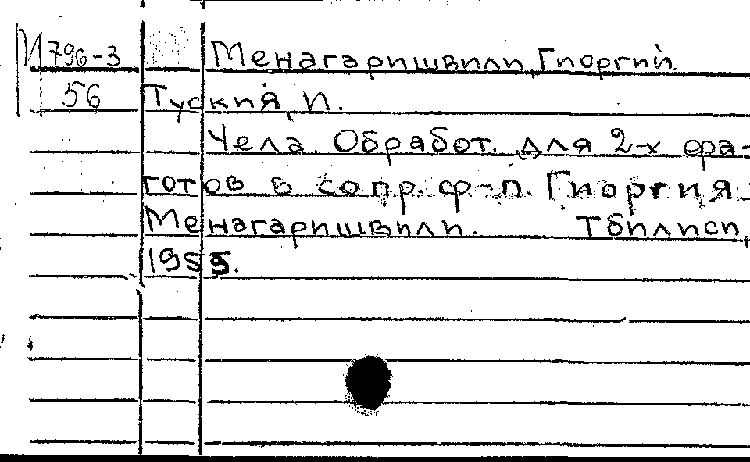 М796-3 Менагаришвили, Гиоргий
56 Туский, И.
Чела. Обработ. для 2-х фа-
готов в сопр. ф-п. Гиоргия
Менагаришвили. Тбилиси,
1955.